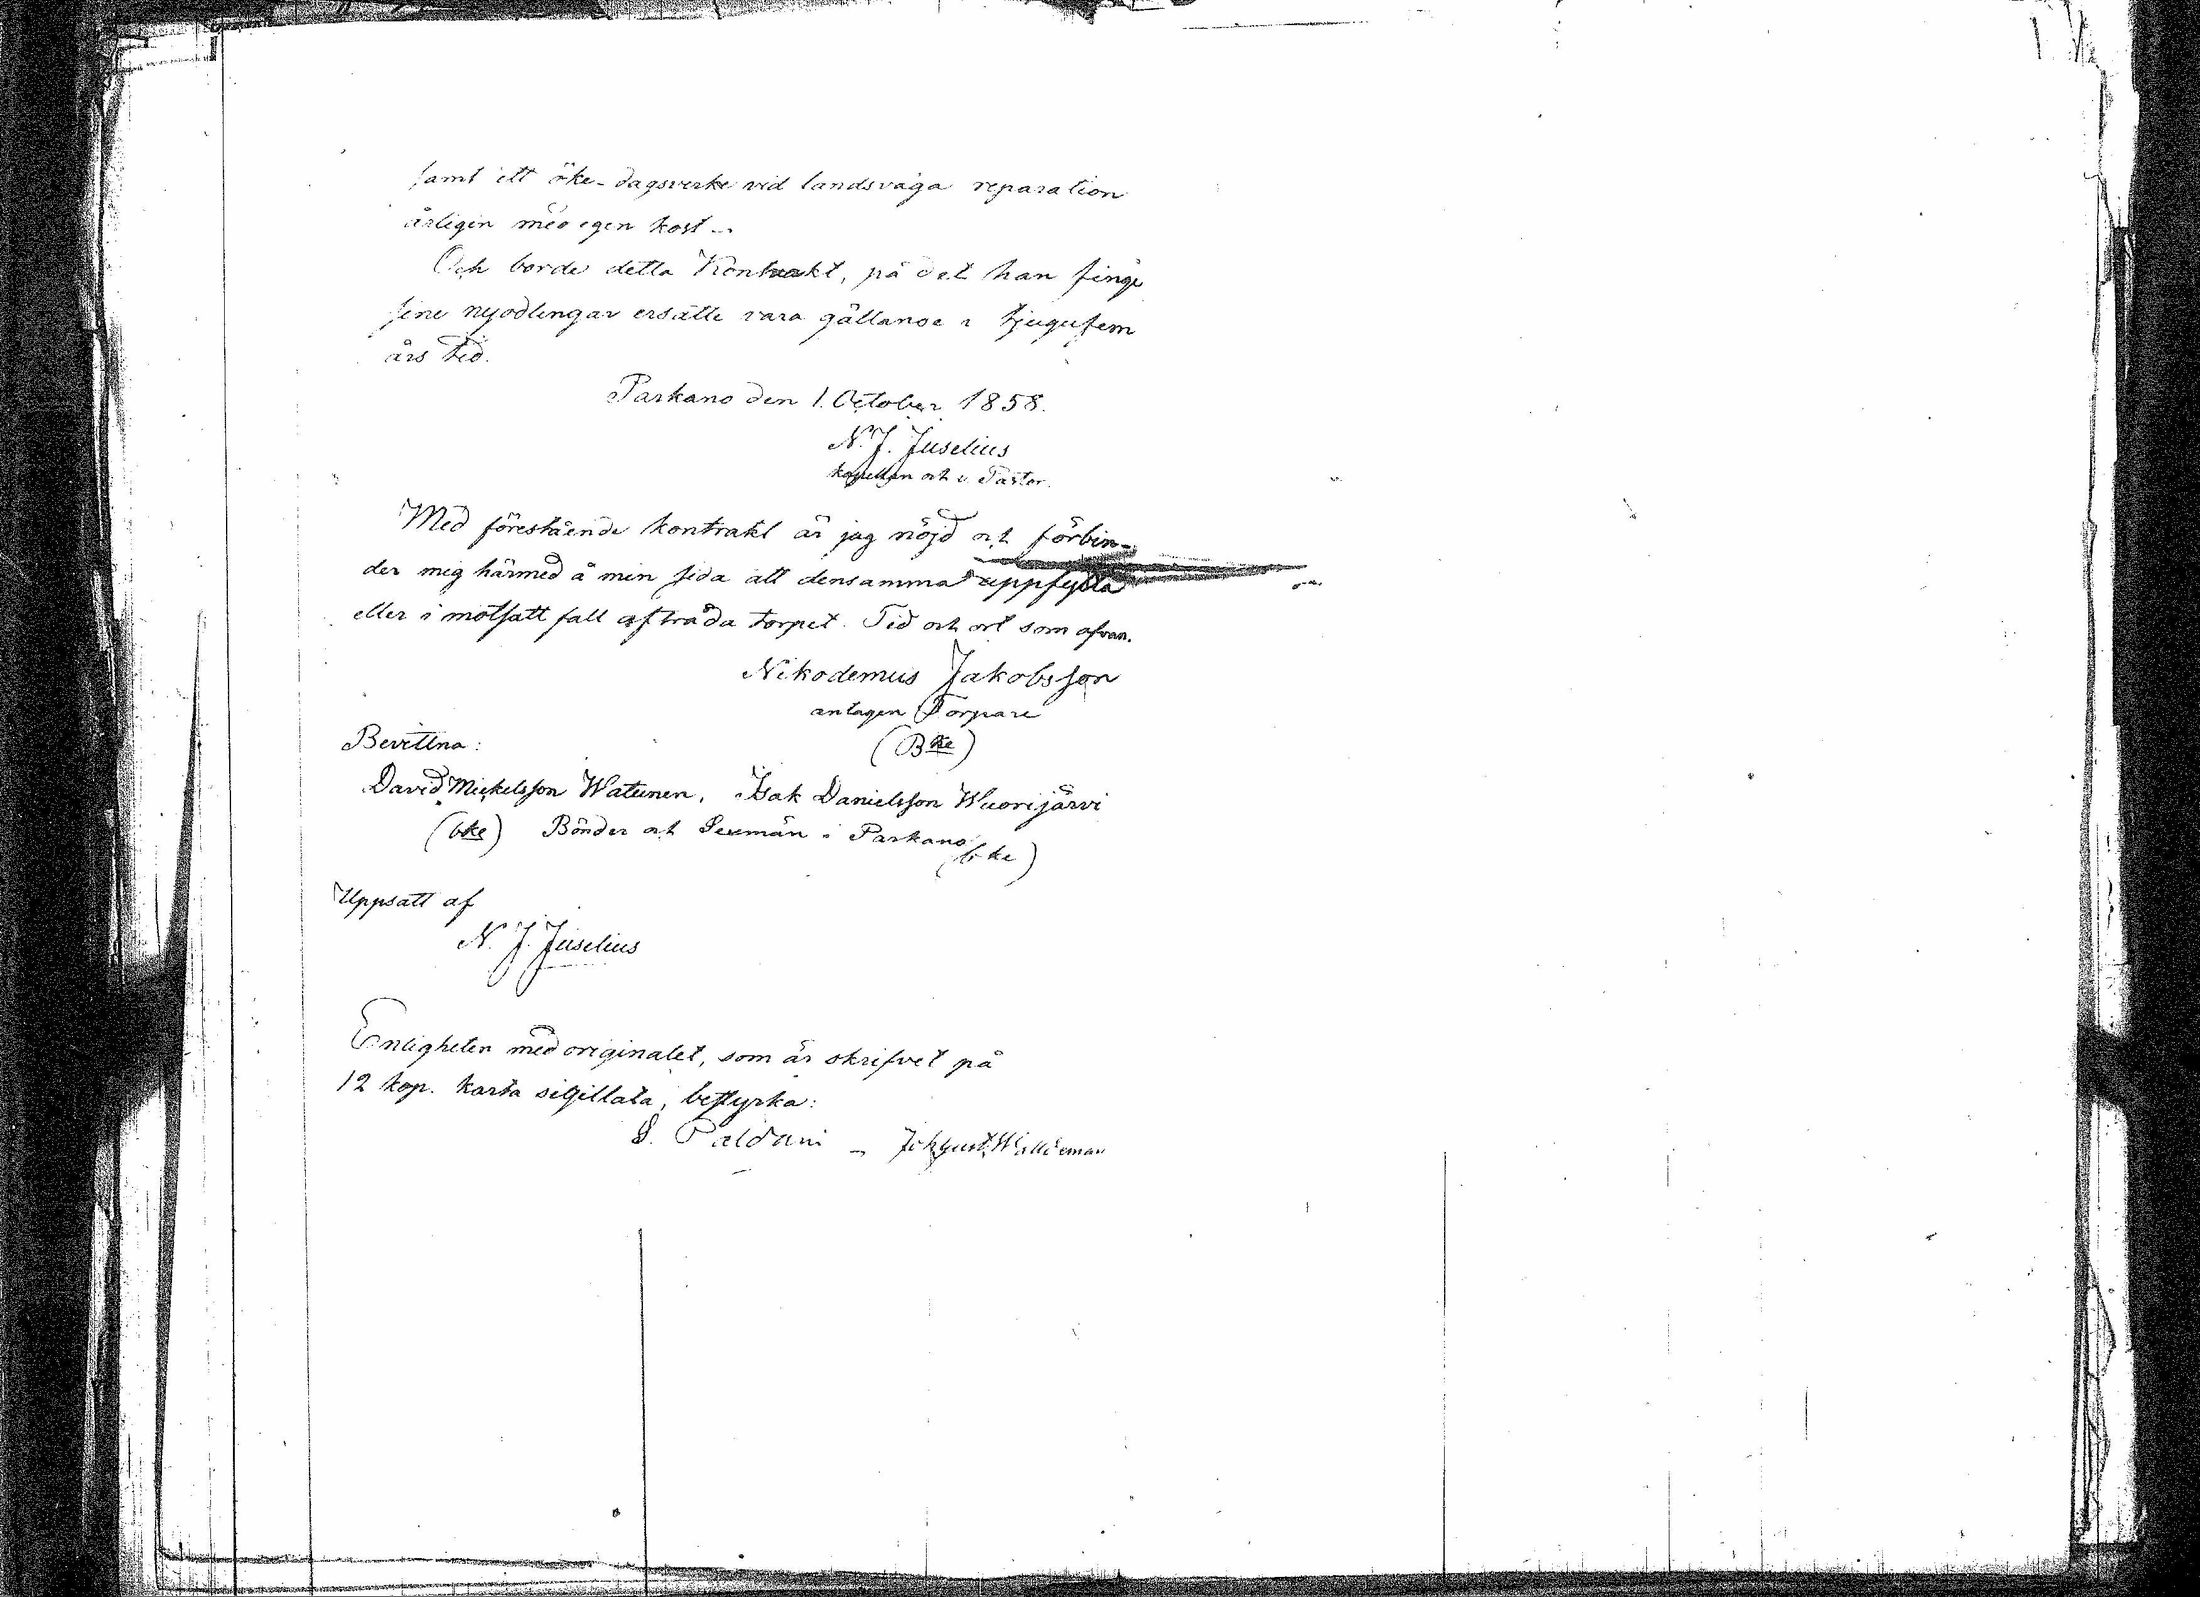 samt ett öke-dagsverke vid landsväga reparation
årligen med egen kost.
Och borde detta Kontrakt, på det han finge
sine nyodlingar ersatte vara gällande i tjugufem
års tid.
Parkano den 1. October 1858.
N. J. Juselius
kapellan och v. Pastor.
Med förestående kontrakt är jag nöjd och förbin-
der mig härmed å min sida att densamma uppfylla
eller i motsatt fall afträda torpet. Tid och ort som ofvan.
Nikodemus Jakobsson
antagen Torpare
(Bke)
Bevittna:
David Mickelsson Watunen, Isak Danielsson Wuorijärvi
(bke) Bönder och Sexmän i Parkano
(bke)
Uppsatt af
N. J. Juselius
Enligheten med originalet, som är skrifvet på
12 kop. karta sigillata, bestyrka:
S. Paldani